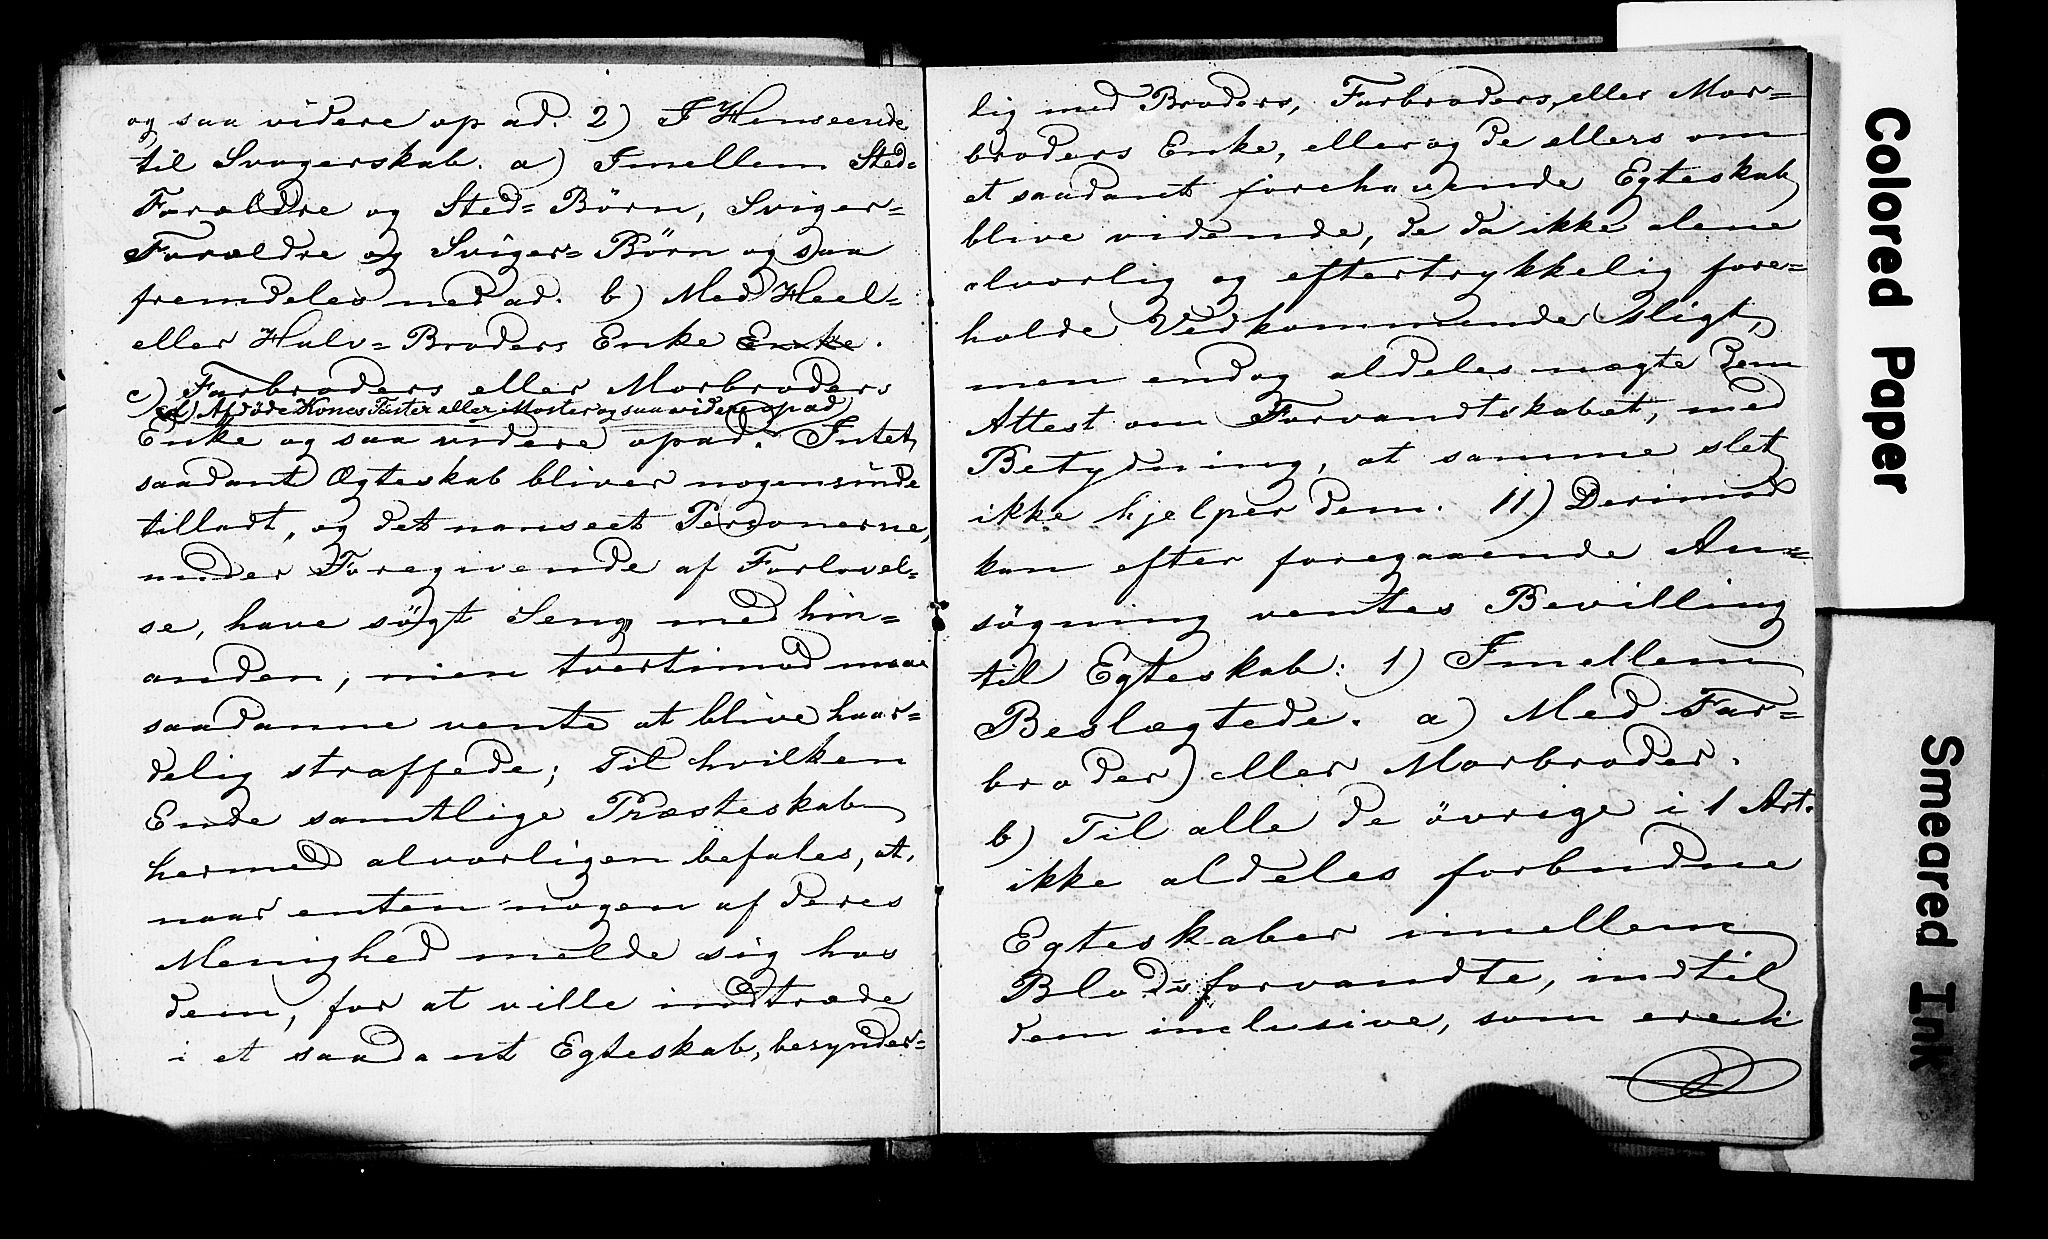 og saa videre op ad. 2) I Henseende
til Svogerskab. a) Imellem Sted=
Forældre og Sted=Börn, Sviger=
Forældre og Sviger=Börn og saa
fremdeles ned ad. b) Med Heel=
eller Halv=Broders Enke Enke.
c) Farbroders eller Morbroders
d) Afdöde Kones Faster eller Moster og saa videre op ad
Enke og saa videre opad. Intet
saadant Ægteskab bliver nogensinde
tilladt, og det uanseet Personerne,
under Foregivende af Forlovel=
se, have sögt Seng med hin=
anden, men tvertimod maae
saadanne vente at blive haar=
delig straffede; Til hvilken
Ende samtlige Præsteskab
hermed alvorligen befales, at,
naar enten nogen af deres
Menighed melde sig hos
dem, for at ville indtræde
i et saadant Egteskab, besynder=
lig med Broders, Farbroders, eller Mor=
broders Enke, eller og de ellers om
et saadant forehavende Egteskab
blive vidende, de da ikke alene
alvorlig og eftertrykkelig fore=
holde Vedkommende sligt,
men endog aldeles nægte dem
Attest om Forvandtskabet, med
Betydning, at samme slet
ikke hjelper dem. 11) Derimod
kan efter foregaaende An=
sögning ventes Bevilling
til Egteskab: 1) Imellem
Beslægtede. a) Med Far=
broder) eller Morbroder.
b) Til alle de övrige i 1 Art.
ikke aldeles forbudne
Egteskaber imellem
Blodsforvandte, indtil
dem inclusive, som ere i
Colored Paper
Smeared Ink